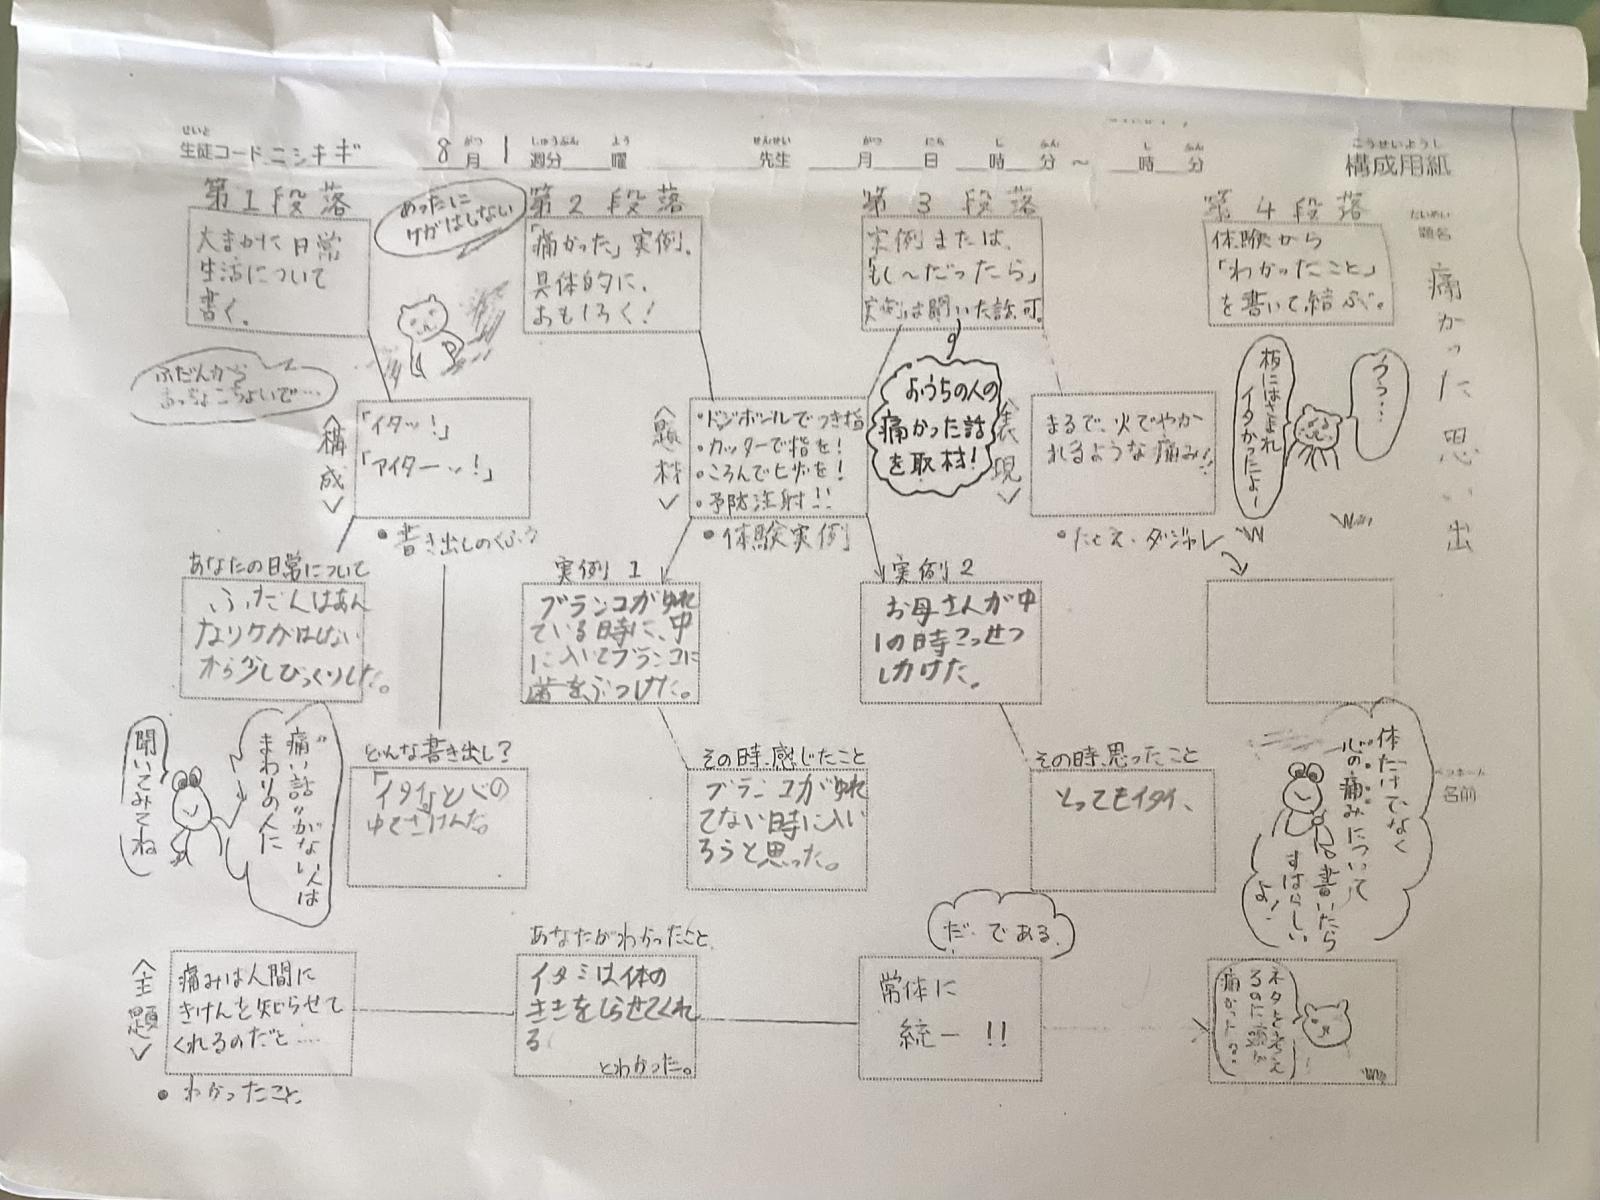 せいと がつ しゅうぶん よう せんせい がつ にち じ ふん じ ふん こうせいようし
生徒コード ニシキギ 8月 1週分 曜 先生 月 日 時 分 ～ 時 分 構成用紙
だいめい
題名
痛かった思い出
ペンネーム
名前
第1段落
大まかに日常
生活について
書く。
めったに
ケガはしない
ふだんから
おっちょこちょいで……
第2段落
「痛かった」実例。
具体的に、
おもしろく！
第3段落
実例または、
「もし～だったら」
実例は聞いた話可。
おうちの人の
痛かった話
を取材！
第4段落
体験から
「わかったこと」
を書いて結ぶ。
うっ…
板にはさまれ
イタかったよー
〈構成〉
「イタッ！」
「アイターッ！」
●書き出しのくふう
〈題材〉
・ドッジボールでつき指
・カッターで指を！
・ころんでヒザを！
・予防注射！！
●体験実例
〈表現〉
まるで、火でやか
れるような痛み！！
●たとえ・ダジャレ
あなたの日常について
ふだんはあん
なりケガはしない
から少しびっくりした。
実例1
ブランコがゆれ
ている時に、中
に入いてブランコに
歯をぶつけた。
実例2
お母さんが中
1の時こっせつ
しかけた。
聞いてみてね
"痛い話"がない人は
まわりの人に
どんな書き出し？
「イタイ」と心の
中でさけんだ。
その時、感じたこと
ブランコがゆれ
てない時に入い
ろうと思った。
その時、思ったこと
とってもイタイ、
体だけでなく
心の痛みについて
書いたら
すばらしい
よ！
〈主題〉
痛みは人間に
きけんを知らせて
くれるのだと……
●わかったこと
あなたがわかったこと
イタミは体の
ききをしらせてくれ
る
とわかった。
だ・である
常体に
統一！！
ネタを考え
るのに頭が